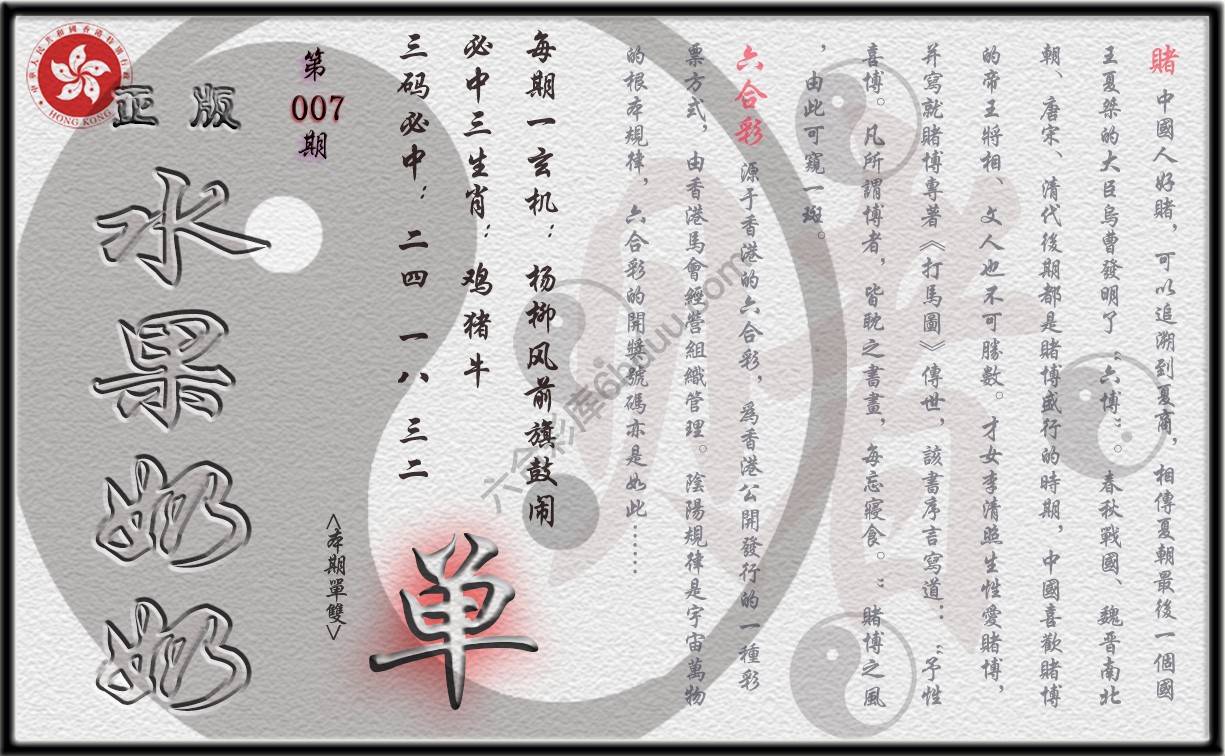 賭 中國人好賭，可以追溯到夏商，相傳夏朝最後一個國
王夏桀的大臣烏曹發明了“六博”。春秋戰國、魏晉南北
朝、唐宋、清代後期都是賭博盛行的時期，中國喜歡賭博
的帝王將相、文人也不可勝數。才女李清照生性愛賭博，
并寫就賭博專著《打馬圖》傳世，該書序言寫道：“予性
喜博。凡所謂博者，皆耽之書畫，每忘寢食。”賭博之風
，由此可窺一斑。
六合彩 源于香港的六合彩，爲香港公開發行的一種彩
票方式，由香港馬會經營組織管理。陰陽規律是宇宙萬物
的根本規律，六合彩的開獎號碼亦是如此……
每期一玄机：杨柳风前旗鼓闹
必中三生肖：鸡猪牛
三码必中：二四 一八 三二
单
<本期單雙>
第
007
期
正版
水果奶奶
中華人民共和國香港特別行政區
HONG KONG
六合彩库6hduu.com